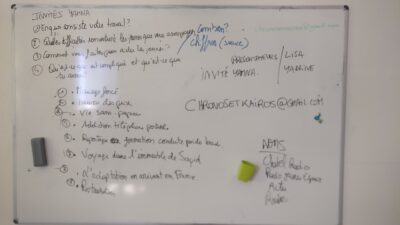 INVITÉS YAMNA
① En quoi consiste votre travail?
② Quelles difficultés rencontrent les jeunes que vous accompagnez
Combien?
Chiffres (source)
③ Comment vous faites pour aider les jeunes?
④ Qu'est-ce qui est compliqué et qu'est-ce que
tu aimes
PRÉSENTATEURS / LISA
YASSINE
INVITÉ YAMNA.
CHRONOSETKAIROS@GMAIL.COM
① • Mariage forcé
② •
③ • Vie sans-papiers
④ • Addiction téléphone portable.
⑤ • Reportage formation conduite poids lourd
⑥ • Voyage dans l'ensemble de Sayid
⑦ • L'adaptation en arrivant en France
⑧ •
NOMS
Radio
Radio Jeunes Espace
Actu